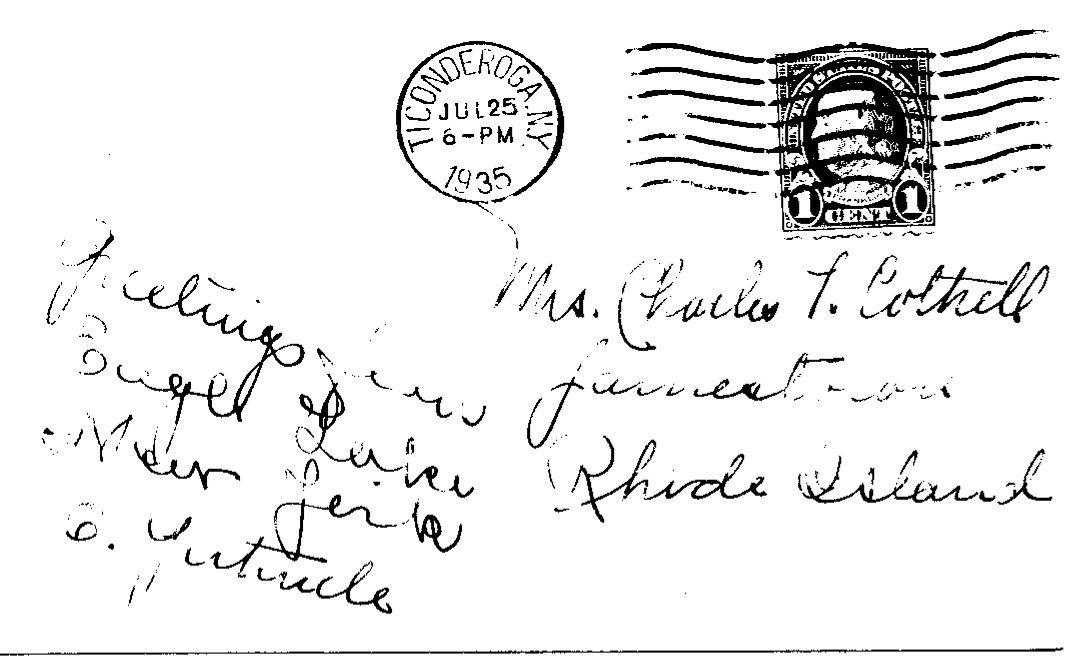 TICONDEROGA, N.Y.
JUL 25
6-PM
1935
1 CENT 1
Greetings from
Eagle Lake
New York
E. Gertrude
Mrs. Charles F. Cottrell
Jamestown
Rhode Island